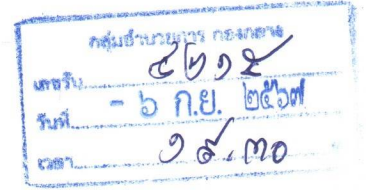 กลุ่มอำนวยการ กองกลาง
เลขรับ ๕๒๑๕
วันที่ - ๖ ก.ย. ๒๕๖๗
เวลา ๑๕.๓๐